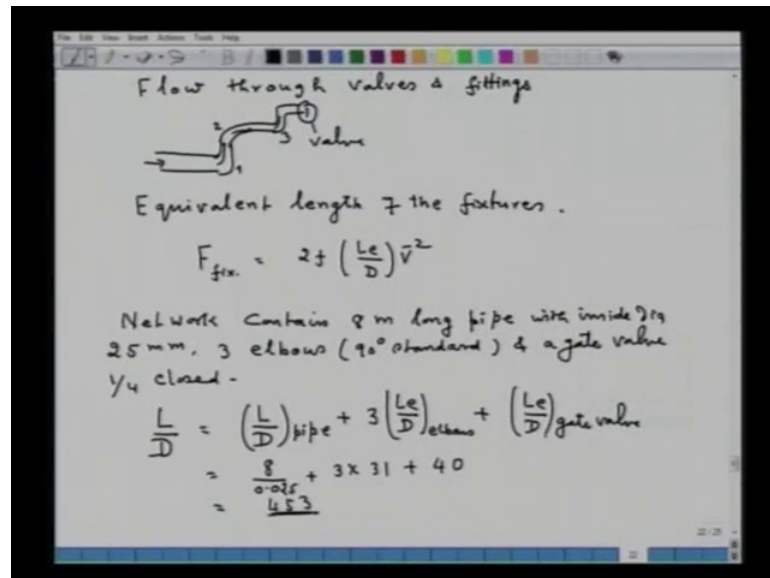 File Edit View Insert Actions Tools Help
Flow through valves & fittings
2
3
valve
1
Equivalent length of the fixtures.
F_fix. = 2f (Le/D) v̄²
Network Contain 8 m long pipe with inside dia
25 mm, 3 elbows (90° standard) & a gate valve
1/4 closed -
L/D = (L/D)pipe + 3(Le/D)elbows + (Le/D)gate valve
= 8/0.025 + 3 x 31 + 40
= 453
22/25